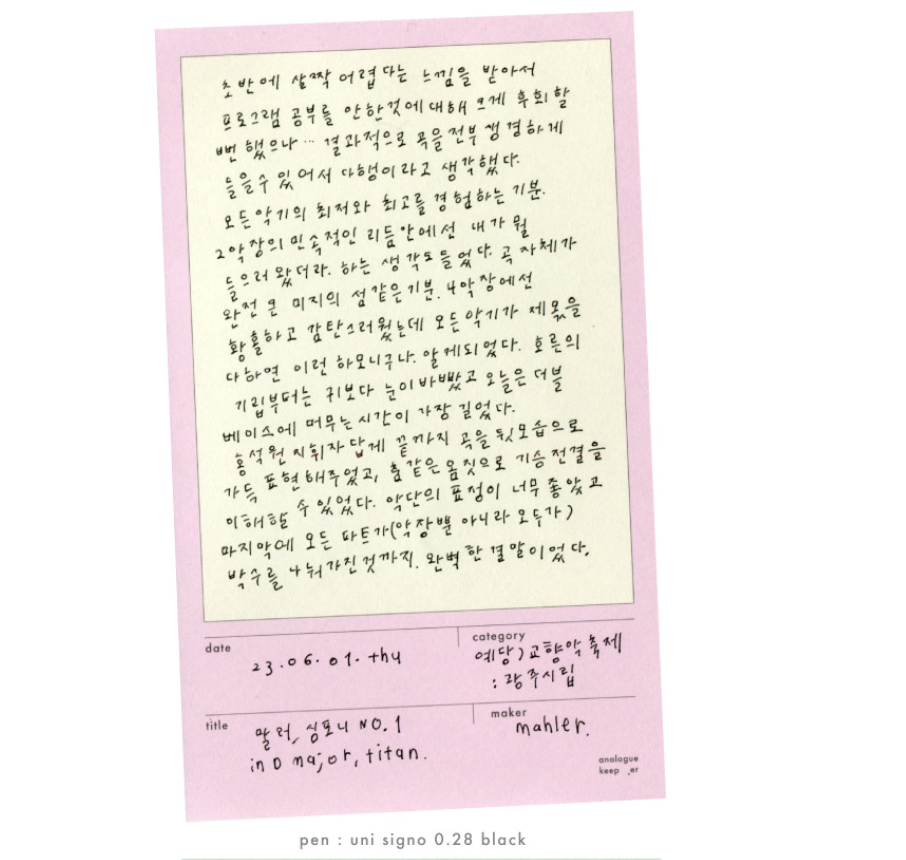 초반에 살짝 어렵다는 느낌을 받아서
프로그램 공부를 안한것에 대해 크게 후회할
뻔 했으나… 결과적으로 곡을 전부 생경하게
들을수 있어서 다행이라고 생각했다.
모든악기의 최저와 최고를 경험하는 기분.
2악장의 민속적인 리듬안에선 내가 뭘
들으러 왔더라. 하는 생각도 들었다. 곡 자체가
완전 큰 미지의 섬같은기분. 4악장에선
황홀하고 감탄스러웠는데 모든악기가 제몫을
다하면 이런 하모니구나. 알게되었다. 호른의
기립부터는 귀보다 눈이 바빴고 오늘은 더블
베이스에 머무는 시간이 가장 길었다.
홍석원 지휘자 답게 끝까지 곡을 뒷모습으로
가득 표현해주었고, 춤같은 몸짓으로 기승전결을
이해할 수 있었다. 악단의 표정이 너무 좋았고
마지막에 모든 파트가(악장뿐 아니라 모두가)
박수를 나눠가진 것까지. 완벽한 결말이었다.
date
23.06.01.thu
category
예당) 교향악축제
: 광주시립
title
말러, 심포니 NO.1
in D major, titan.
maker
mahler.
analogue
keep _er
pen : uni signo 0.28 black